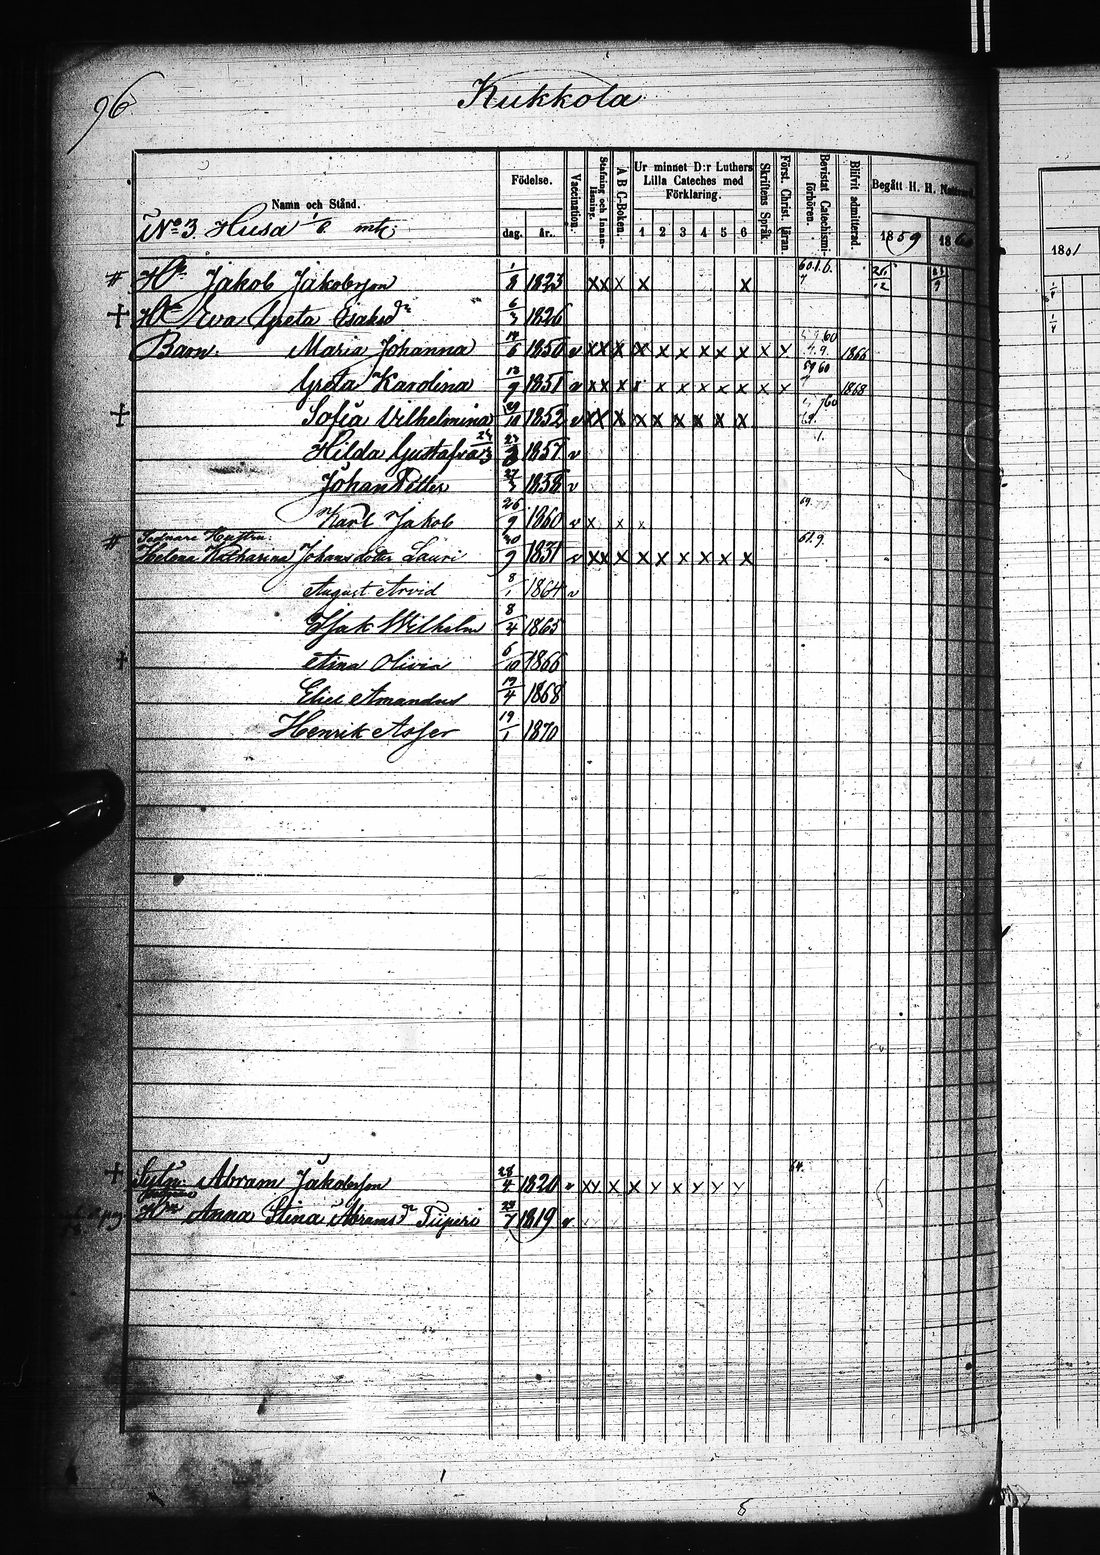 96
Kukkola
Namn och Stånd.
Födelse.
dag. år.
Vaccination.
Stafning och Innanläsning.
A B C-Boken.
Ur minnet D:r Luthers Lilla Cateches med Förklaring.
1 2 3 4 5 6
Skriftens Språk.
Först. Christ. läran.
Bevistat Catechismiförhören.
Blifvit admitterad.
Begått H. H. Nattvard
1859 1860
1861
No 3. Husa 1/6 mtl:
Jakob Jakobsson 1/8 1823 x x x x x
Eva Greta Isaksdr 6/3 1826
Barn: Maria Johanna 1850 v x x x x x x x x x x x 1866
Greta Karolina 13/9 1851 v x x x x x x x x x x x 1868
Sofia Vilhelmina 29/10 1852 v x x x x x x x x x
Hilda Gustafva 1857 v
Johan Petter 1858 v
Karl Jakob 26/9 1860 v x x x
Sednare Hustru:
Helena Katharina Johansdotter Lauri 20/9 1831 v x x x x x x x x x
August Arvid 8/1 1864 v
Isak Wilhelm 8/4 1865
Olivia 6/10 1866
Eliel Amandus 19/4 1868
Henrik Asser 19/1 1870
Sytn: Abram Jakobsson 28/4 1820 v x x x x x x x x x
Anna Stina Abramsdr 1819 v